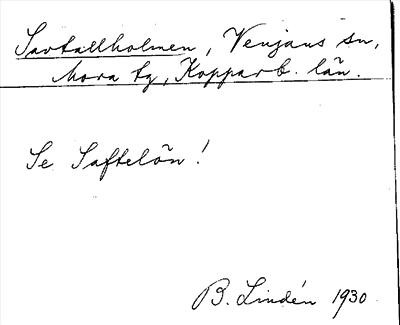 Savtallholmen, Venjans sn,
Mora tg, Kopparb. län.
Se Saftelön!
B. Lindén 1930